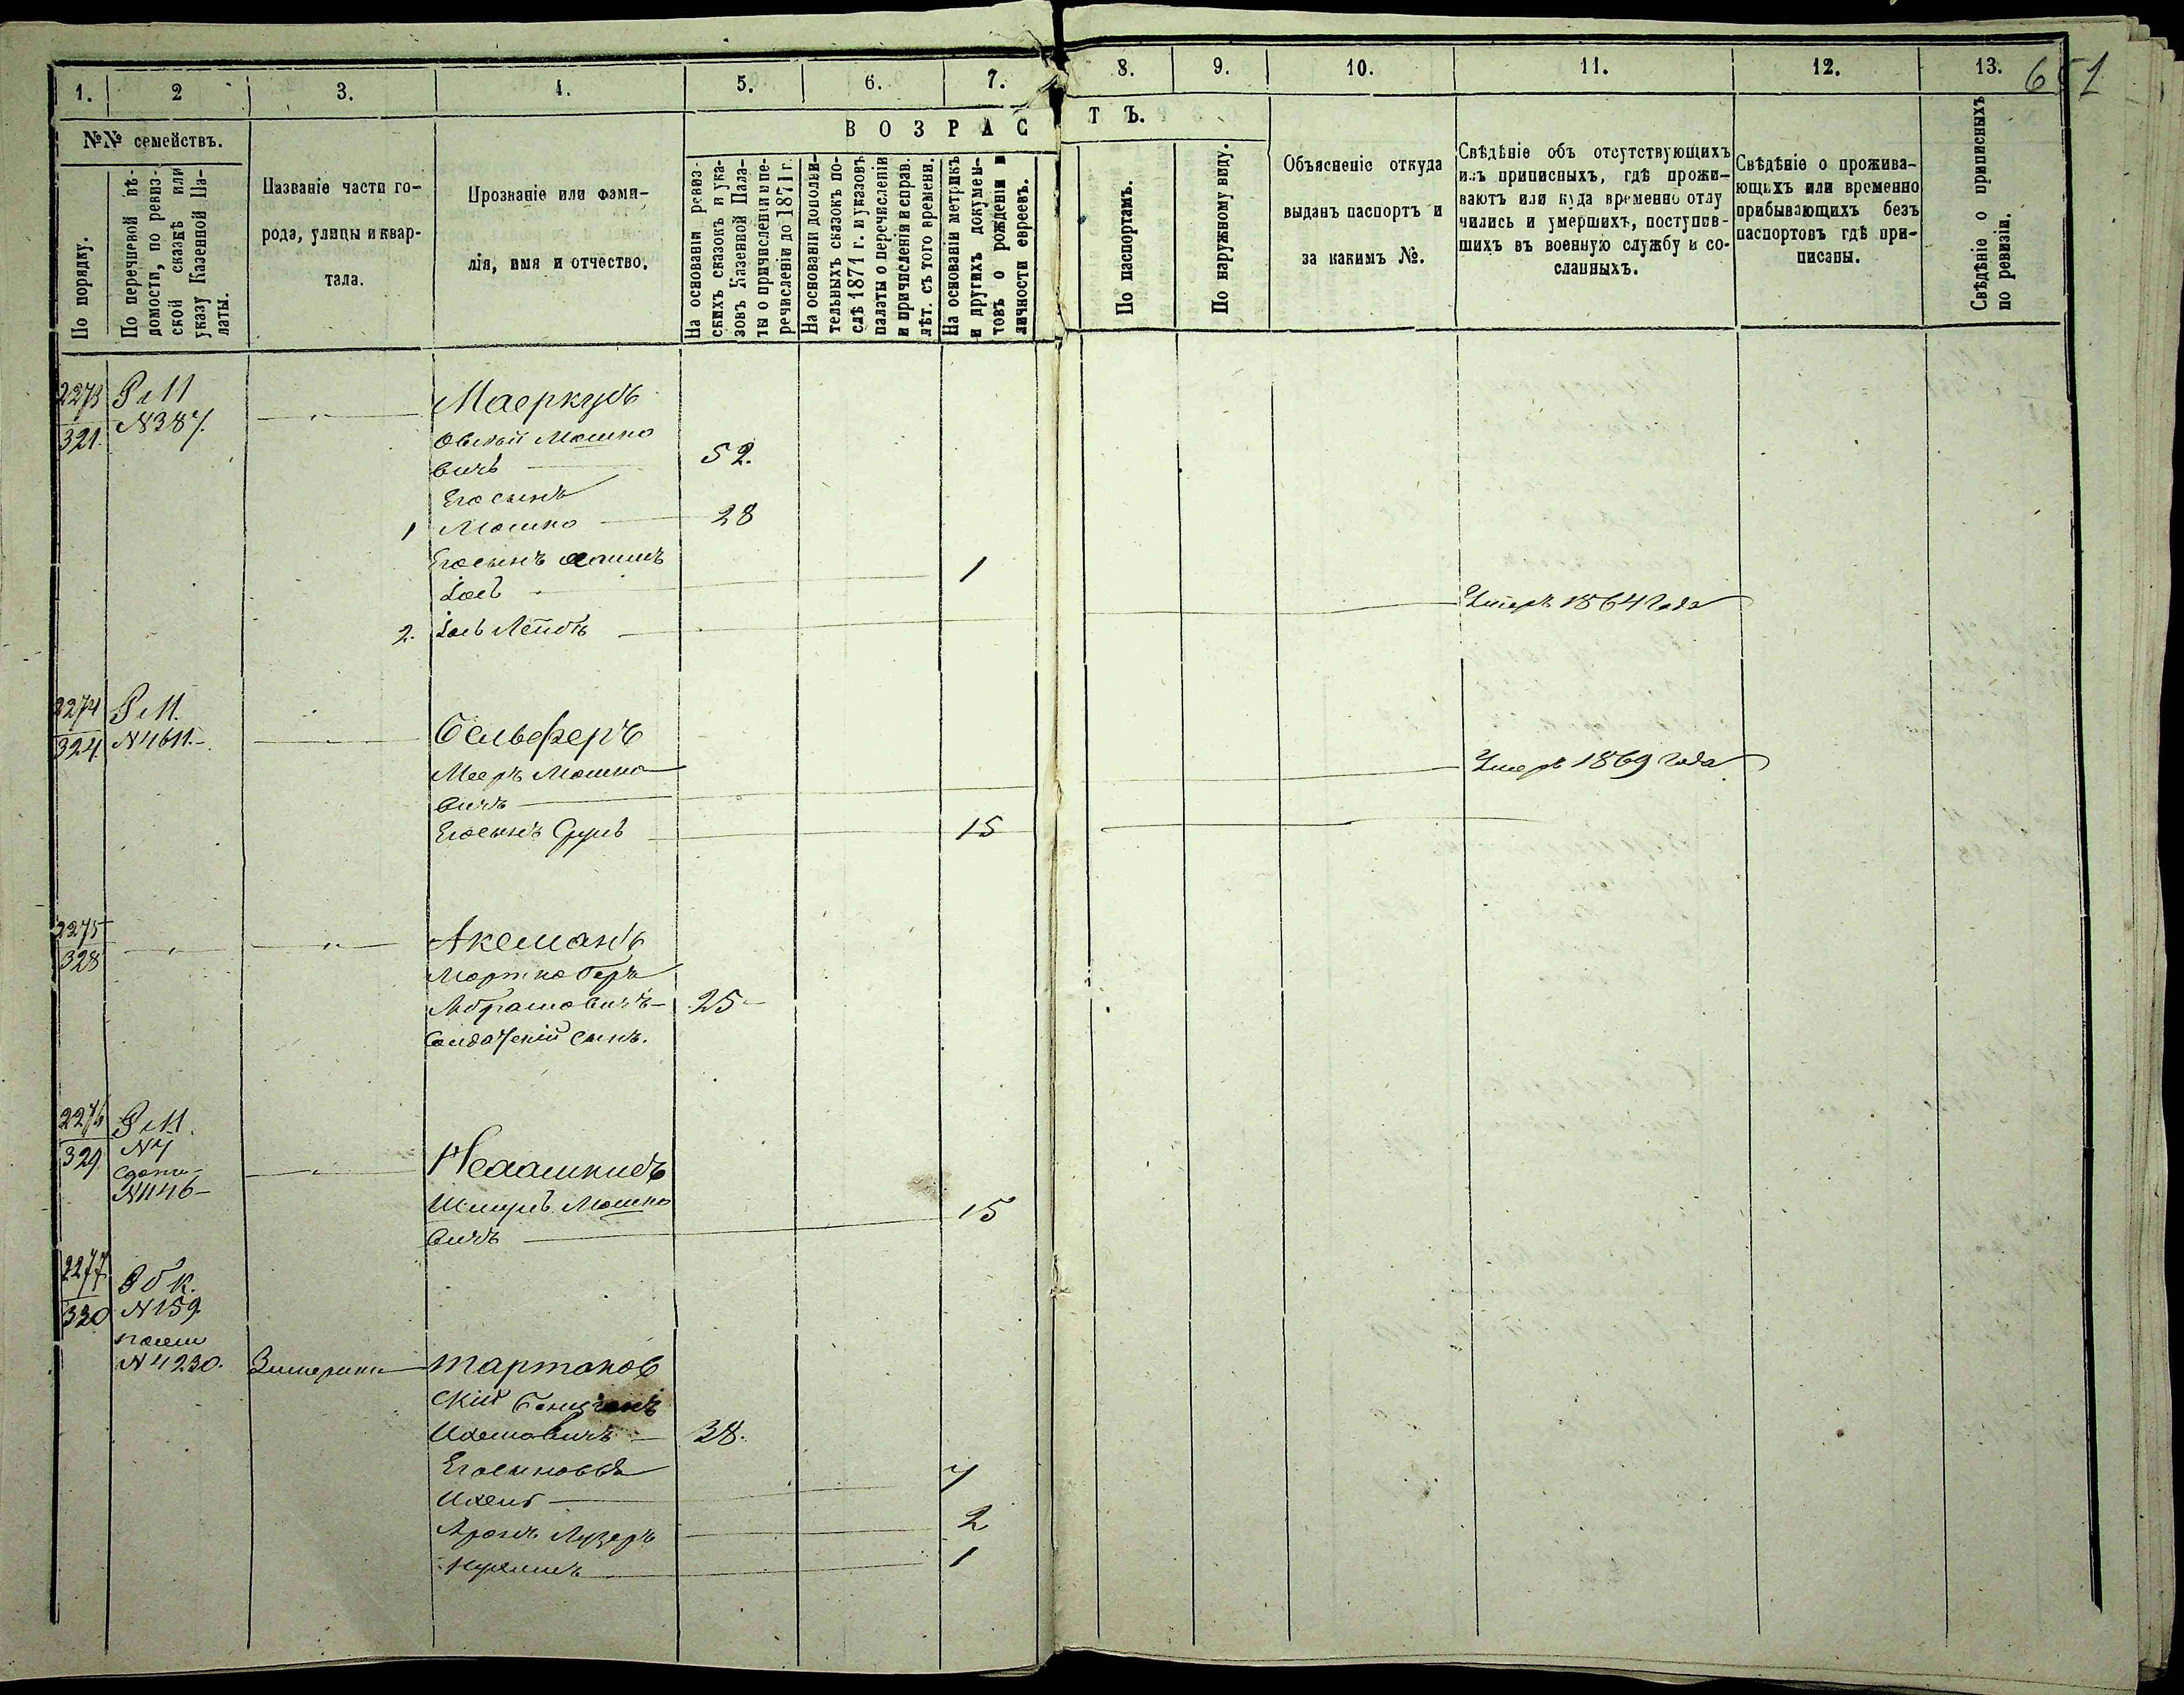 1. 2 3. 4. 5. 6. 7. 8. 9. 10. 11. 12. 13. 651
№№ семействъ.
По порядку.
По перечневой вѣ-
домости, по ревиз-
ской сказкѣ или
указу Казенной Па-
латы.
Названіе части го-
рода, улицы и квар-
тала.
Прозваніе или фами-
лія, имя и отчество.
ВОЗРАСТЪ.
На основаніи ревиз-
скихъ сказокъ и ука-
зовъ Казенной Пала-
ты о причисленіи и пе-
речисленіи до 1871 г.
На основаніи дополни-
тельныхъ сказокъ по-
слѣ 1871 г. и указовъ
палаты о перечисленіи
и причисленіи и справ.
лѣт. съ того времени.
На основаніи метрикъ
и другихъ докумен-
товъ о рожденіи и
личности евреевъ.
По паспортамъ.
По наружному виду.
Объясненіе откуда
выданъ паспортъ и
за какимъ №.
Свѣдѣніе объ отсутствующихъ
изъ приписныхъ, гдѣ прожи-
ваютъ или куда временно отлу
чились и умершихъ, поступив-
шихъ въ военную службу и со-
сланныхъ.
Свѣдѣніе о прожива-
ющихъ или временно
прибывающихъ безъ
паспортовъ гдѣ при-
писаны.
Свѣдѣніе о приписныхъ
по ревизіи.
2273 Р М Маеркусъ
321. N387.
Мошко
вичъ 52.
Его сынъ
1 Мошко 28
Его сынъ 1
2. Умеръ 1864 года
2274 Р М.
324. N4611. Бельферъ
Мееръ Мошко
вичъ Умеръ 1869 года
Его сынъ Сруль 15
2275 Акеманъ
328
Мортко Беръ
Абрамовичъ 25
Солдатскій сынъ.
2276 Р М.
329. N7
N1146
Шмуль Мошко 15
вичъ
2277
330 N159.
N4230. Тартаков
скій
38.
Его сыновья
7
Аронъ Лузеръ 2
1